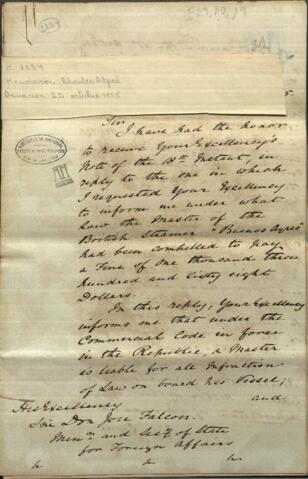 I-29,30,19
C. 1254
Asunción 22 octubre 1855
Sir
I have had the honor
to receive Your Excellency's
Note of the 18th Instant, in
reply to the one in which
I requested Your Excellency
to inform me under what
Law the Master of the
British Steamer "Buenos Ayres"
had been compelled to pay
a Fine of One thousand three
hundred and sixty eight
Dollars.
In this reply, Your Excellency
informs me that under the
Commercial Code in force
in the Republic, a Master
is liable for all Infraction
of Law on board his Vessel;
and
His Excellency
Don Jose Falcon.
and Secy of State
for Foreign Affairs